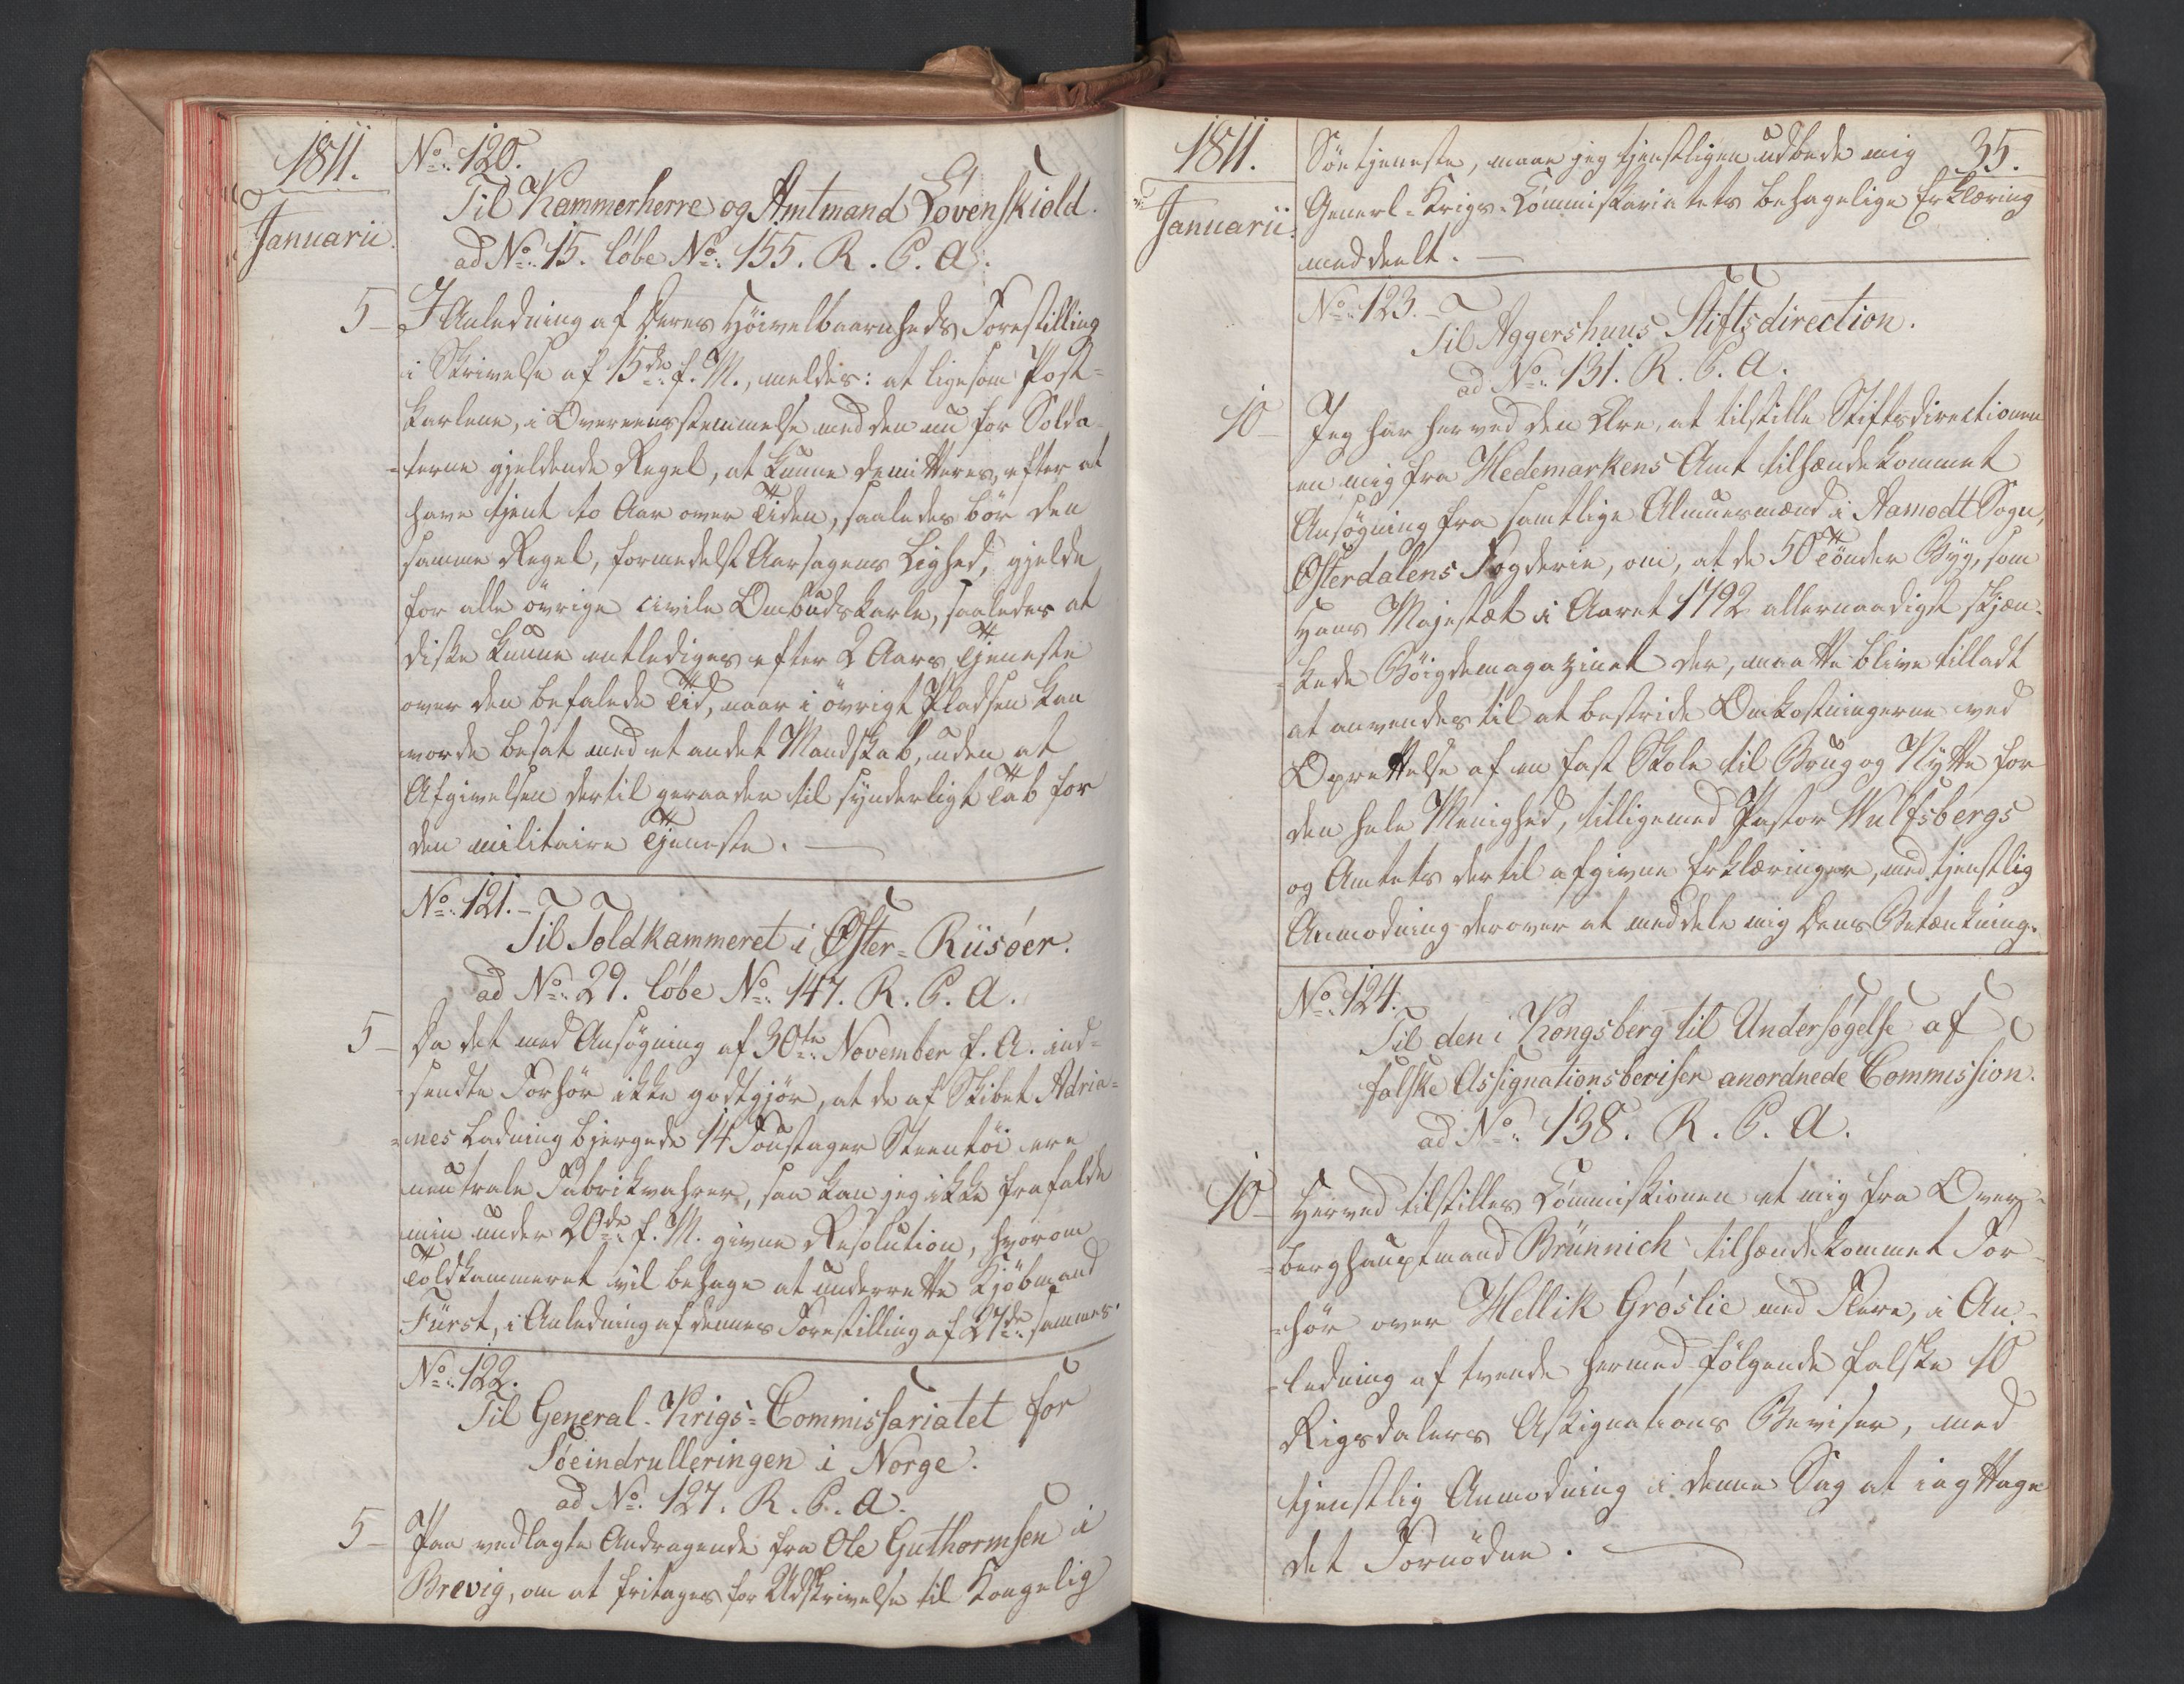 1811.
Januarii.
No. 120.
Til Kammerherre og Amtmand Løvenskiold.
ad No. 15. løbe No. 155. R. C. A.
5 - I Anledning af Deres Høivelbaarnheds Forestilling
i Skrivelse af 15de f. M., meldes: at ligesom Post-
karlene, i Overeensstemmelse med den nu for Solda-
-terne gjeldende Regel, at kunne demitteres, efter at
have tjent to Aar over Tiden, saaledes bör den
samme Regel, formedelst Aarsagens Lighed, gjelde
for alle övrige civile Ombudskarle, saaledes at
diske kunne entlediges efter 2 Aars Tjeneste
over den befalede Tid, naar i övrigt Pladsen kan
vorde besat med et andet Mandskab, uden at
Afgivelsen dertil geraader til synderligt Tab for
den militaire Tjeneste.
No. 121.
Til Toldkammeret i Øster-Riisøer.
ad No. 29. løbe No. 147. R. C. A.
5 - Da det med Ansøgning af 30te November f. A. ind-
-sendte Forhör ikke godtgjör, at de af Skibet Adria-
-nes Ladning bjergede 14 Toustager Steentöi ere
neutrale Fabrikvahrer, saa kan jeg ikke frafalde
min under 20de f. M. givne Resolution, hvorom
Toldkammeret vil behage at underrette Kjöbmand
Fürst, i Anledning af dennes Forestilling af 27de sammes.
No. 122.
Til General-Krigs-Commissariatet for
Søeindrulleringen i Norge.
ad No. 127. R. C. A.
5 - Paa vedlagte Andragende fra Ole Guthormsen i
Brevig, om at fritages for Udskrivelse til Kongelig
1811.
Januarii.
35.
Söetjeneste, maae jeg tjenstligen udbede mig
Generl-Krigs-Commissariatets behagelige Erklæring
meddeelt.
No. 123.
Til Aggershuus Stiftsdirection.
ad No. 131. R. C. A.
10 - Jeg har herved den Ære, at tilstille Stiftsdirectionen
en mig fra Hedemarkens Amt tilhændekommet
Ansøgning fra samtlige Almuesmænd i Aamodt Sogn,
Østerdalens Fogderie, om, at de 50 Tönder Byg, som
Hans Majestæt i Aaret 1792 allernaadigst skjæn-
-kede Böigdemagazinet der, maatte blive tilladt
at anvendes til at bestride Omkostningerne ved
Oprettelse af en fast Skole til Brug og Nytte for
den hele Menighed, tilligemed Pastor Wulfsbergs
og Amtets dertil afgivne Erklæringer, med tjenstlig
Anmodning derover at meddele mig Dens Betænkning.
No. 124.
Til den i Kongsberg til Undersøgelse af
falske Assignationsbeviser anordnede Commission.
ad No. 138. R. C. A.
10 - Herved tilstilles Commissionen et mig fra Over-
-berghauptmand Brünnich tilhændekommet For-
-hör over Hellik Grøslie med Flere, i An-
-ledning af tvende hermed fölgende falske 10
Rigsdalers Assignations Beviser, med
tjenstlig Anmodning i denne Sag at iagttage
det Fornödne.